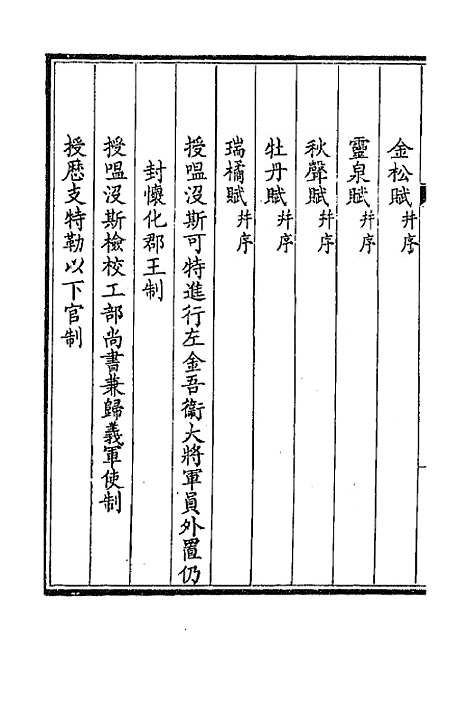 金松賦并序
靈泉賦并序
秋聲賦并序
牡丹賦并序
瑞橘賦并序
授嗢沒斯可特進行左金吾衞大將軍員外置仍
封懷化郡王制
授嗢沒斯檢校工部尚書兼歸義軍使制
授歷支特勒以下官制